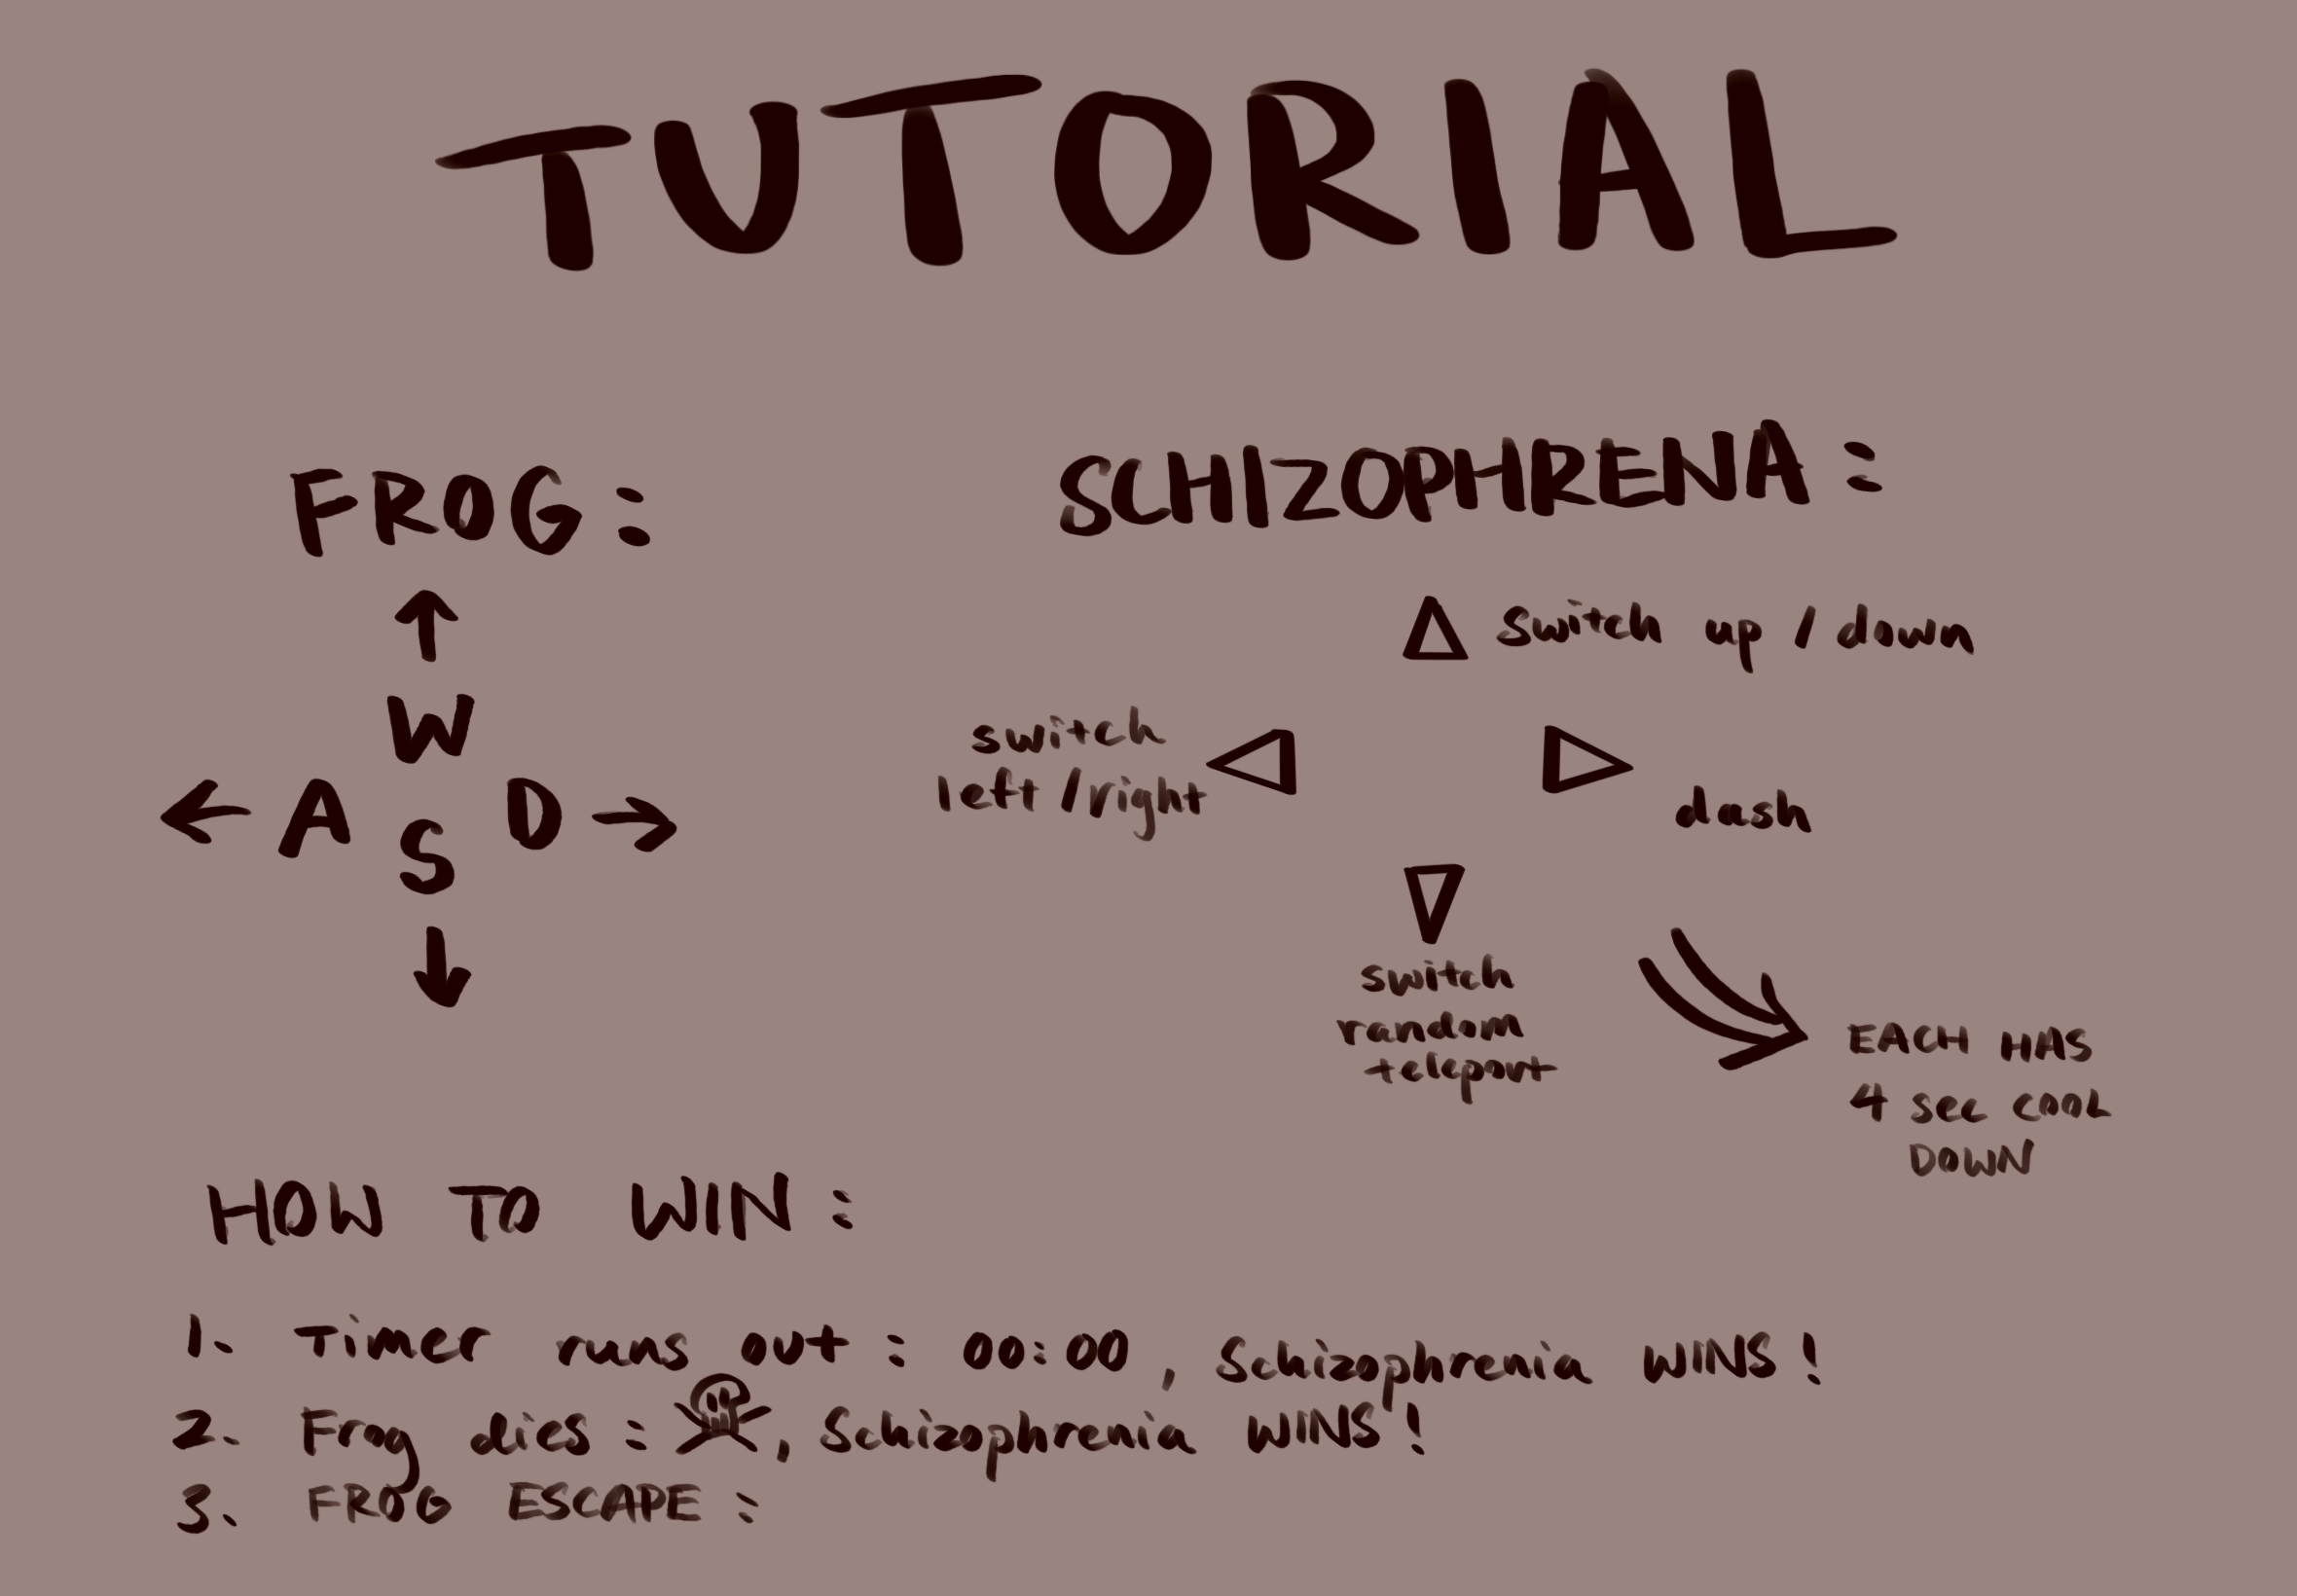 TUTORIAL
FROG:
SCHIZOPHRENA:
switch up / down
W
switch
left / right
A
S
D
dash
switch
random
teleport
EACH HAS
4 sec COOL
DOWN
HOW TO WIN:
1. Timer runs out: 00:00, Schizophrenia WINS!
2. Frog dies: , Schizophrenia WINS!
3. FROG ESCAPE: